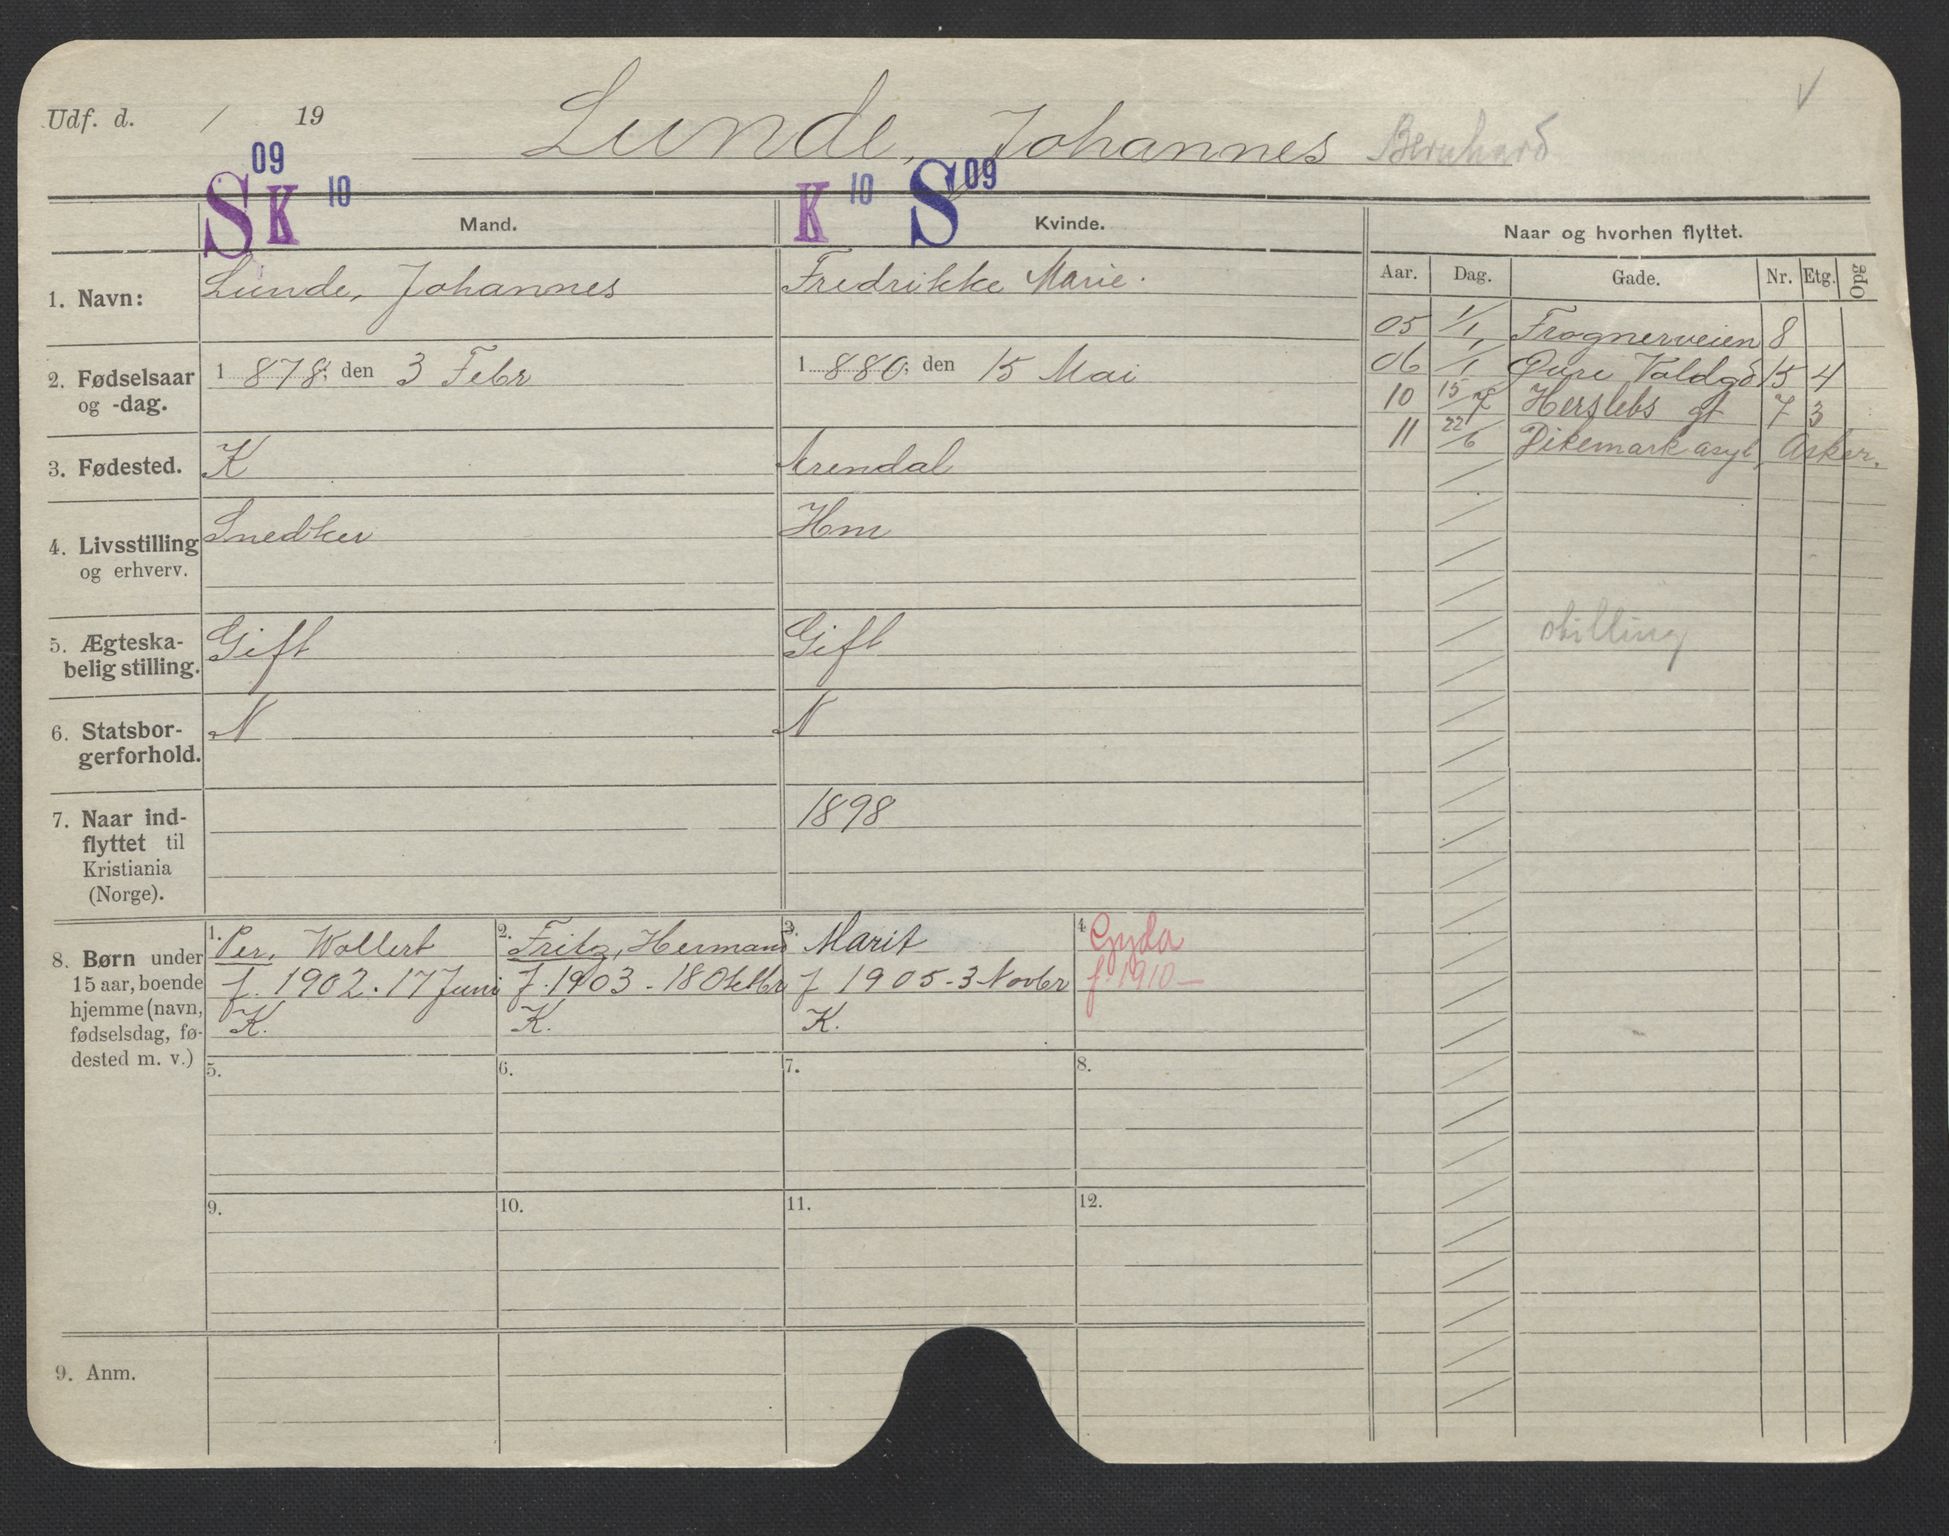 Udf. d. / 19
Lunde, Johannes Bernhard
S 09 K 10 Mand.
K 10 S 09 Kvinde.
Naar og hvorhen flyttet.
Aar. Dag. Gade. Nr. Etg. Opg
1. Navn: Lunde, Johannes
Fredrikke Marie.
2. Fødselsaar og -dag.
1 878; den 3 Febr
1 880; den 15 Mai
3. Fødested. K
Arendal
4. Livsstilling og erhverv.
Snedker
Hm
5. Ægteska-
belig stilling.
Gift
Gift
6. Statsbor-
gerforhold.
N
N
7. Naar ind-
flyttet til
Kristiania
(Norge).
1898
05 1/1 Frognerveien 8
06 /1 Valdg 15 4
10 15/7 Herslebs gt 7 3
11 22/6 Dikemark asyl, Asker.
stilling
8. Børn under
15 aar, boende
hjemme (navn,
fødselsdag, fø-
dested m. v.)
1. Per, Wollert
f. 1902. 17 Juni
K.
2. Fritz, Hermann
f. 1903 - 18 Oktbr
K.
3. Marit
f 1905 - 3 Novbr
K.
4. Gyda
f. 1910 —
5.
6.
7.
8.
9.
10.
11.
12.
9. Anm.